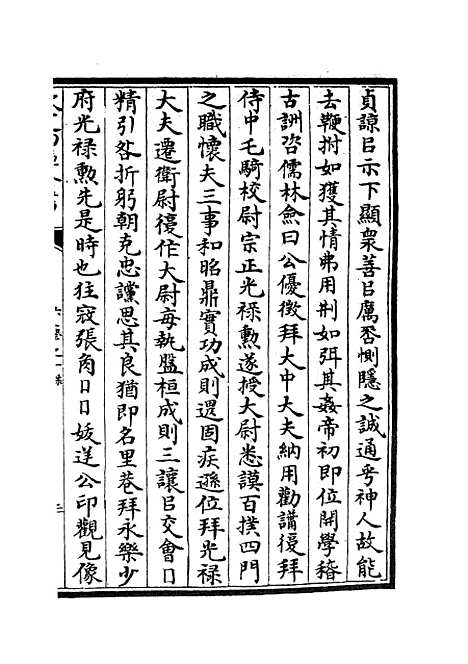 貞諒㠯示下顯衆善㠯厲否惻隱之誠通乎神人故能
去鞭拊如獲其情弗用刑如弭其姦帝初即位開學稽
古訓咨儒林僉曰公優徴拜大中大夫納用勸講復拜
侍中屯騎校尉宗正光祿勲遂授大尉悉謨百揆四門
之職懷夫三事和昭鼎實功成則還固疾遜位拜光祿
大夫遷衛尉復作大尉毎執盤桓成則三讓㠯交會口
精引咎折躬朝克忠讜思其良猶即名里巷拜永樂少
府光祿勲先是時也往寇張角口口妭送公印觀見像